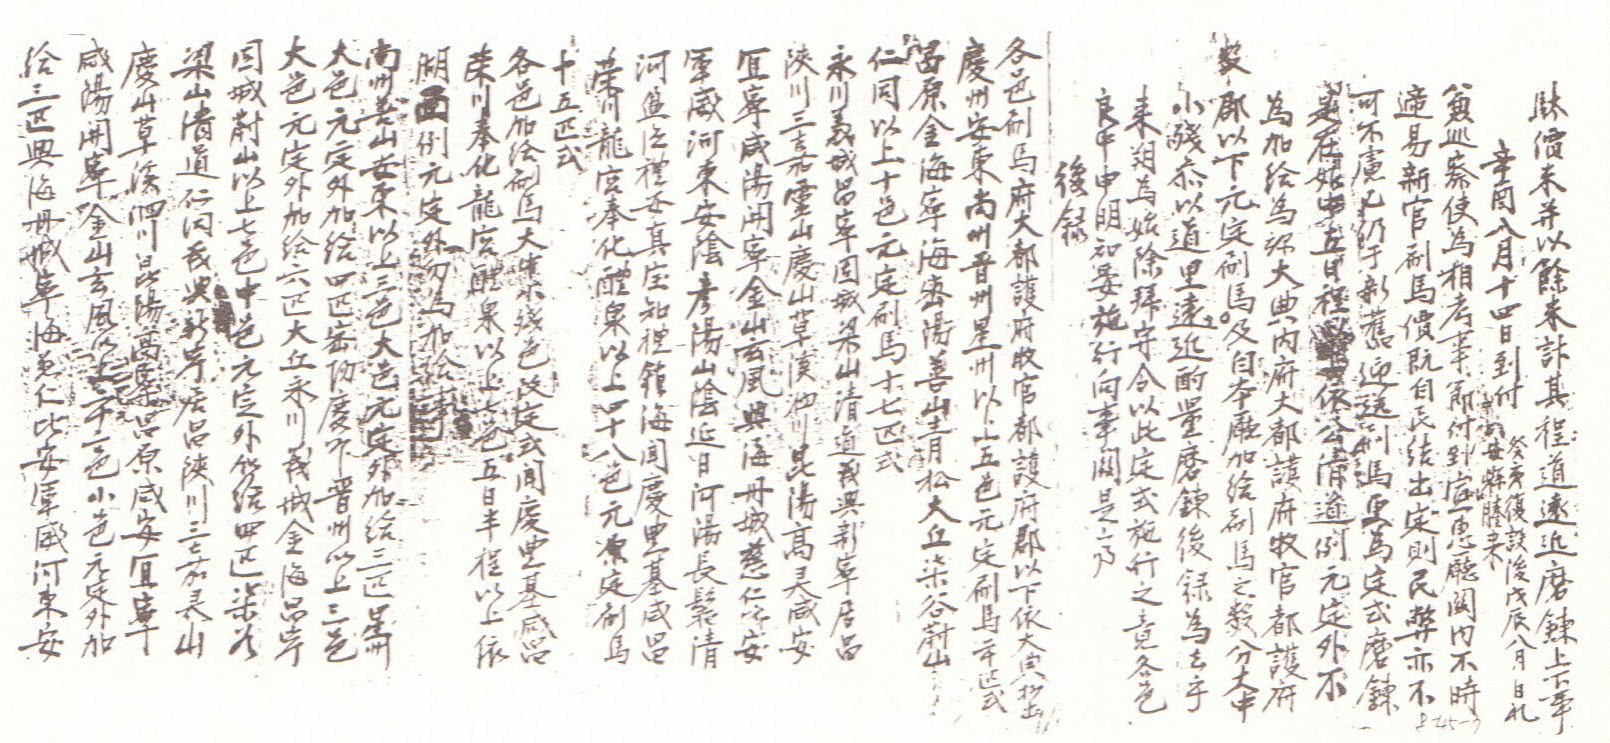 馱價米并以餘米計其程道遠近磨鍊上下事
辛酉八月十四日到付 癸亥復設後戊辰八月 日礼 安解謄来
兼巡察使為相考事節付到宣惠廳關內不時
遞易新官刷馬價既自民結出定則民弊亦不
可不慮乙仍于新舊迎送刷馬更為定式磨鍊
是在如中五日程 依公清道例元定外不
為加給為㫆大典內府大都護府牧官都護府
郡以下元定刷馬及自本廳加給刷馬之數分大中
小殘忝以道里遠近酌量磨鍊後錄為去乎
来朔為始除拜守令以此定式施行之意各邑
良中申明知委施行向事關是乃
後錄
各邑刷馬府大都護府牧官都護府郡以下依大典抄出
慶州安東尚州晋州星州以上五邑元定刷馬二十匹式
昌原金海寧海密陽善山青松大丘柒谷蔚山
仁同以上十邑元定刷馬十七匹式
永川義城昌寧固城梁山清道義興新寧居昌
陜川三嘉靈山慶山草溪泗川昆陽高灵咸安
宜寧咸陽開寧金山玄風興海丹城慈仁 安
軍威河東安陰彦陽山陰延日河陽長鬐清
河盈德禮安真宝知禮鎮海聞慶豊基咸昌
榮川龍宮奉化醴泉以上四十八邑元定刷馬
十五匹式
各邑加給刷馬大中小殘邑改定式聞慶豊基咸昌
榮川奉化龍宮醴泉以上七邑五日半程以上依
湖西例元定外刷馬加給
尚州善山安東以上三邑大邑元定外加給三匹星州
大邑元定外加給四匹密陽慶州晋州以上三邑
大邑元定外加給六匹大丘永川義城金海昌寧
固城蔚山以上七邑中邑元定外加給四匹柒谷
梁山清道仁同義興新寧居昌陜川三嘉灵山
慶山草溪泗川昆陽高灵昌原咸安宜寧
咸陽開寧金山玄風以上二十一邑小邑元定外加
給三匹興海丹城寧海慈仁比安軍威河東安